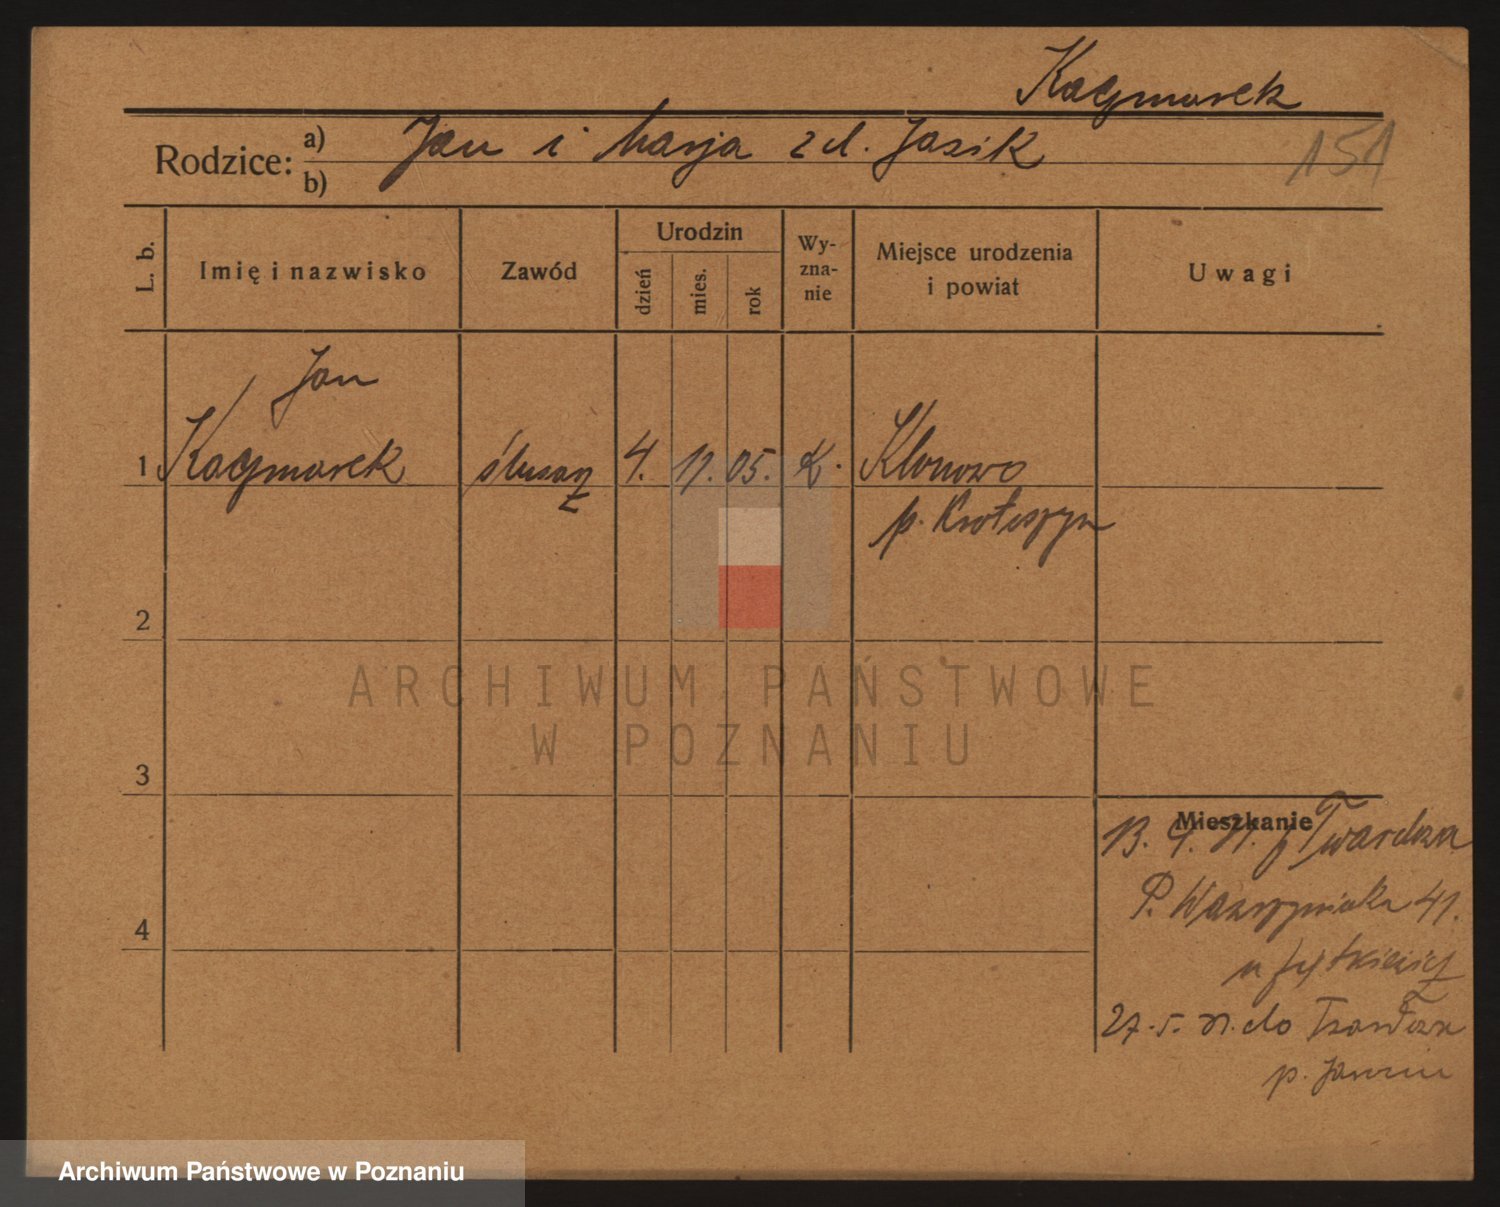 Kaczmarek
Rodzice: a) Jan i Marja z d. Jasik
b)
151
L. b. Imię i nazwisko Zawód Urodzin dzień mies. rok Wy-zna-nie Miejsce urodzenia i powiat Uwagi
Jan
1 Kaczmarek ślusarz 4. 11. 05. K. Klonowo
p. Krotoszyn
2
ARCHIWUM PAŃSTWOWE
W POZNANIU
3
Mieszkanie
13. 4. 31. z
P. Wawrzyniaka 41.
u
27. 5. 31. do
p.
4
Archiwum Państwowe w Poznaniu